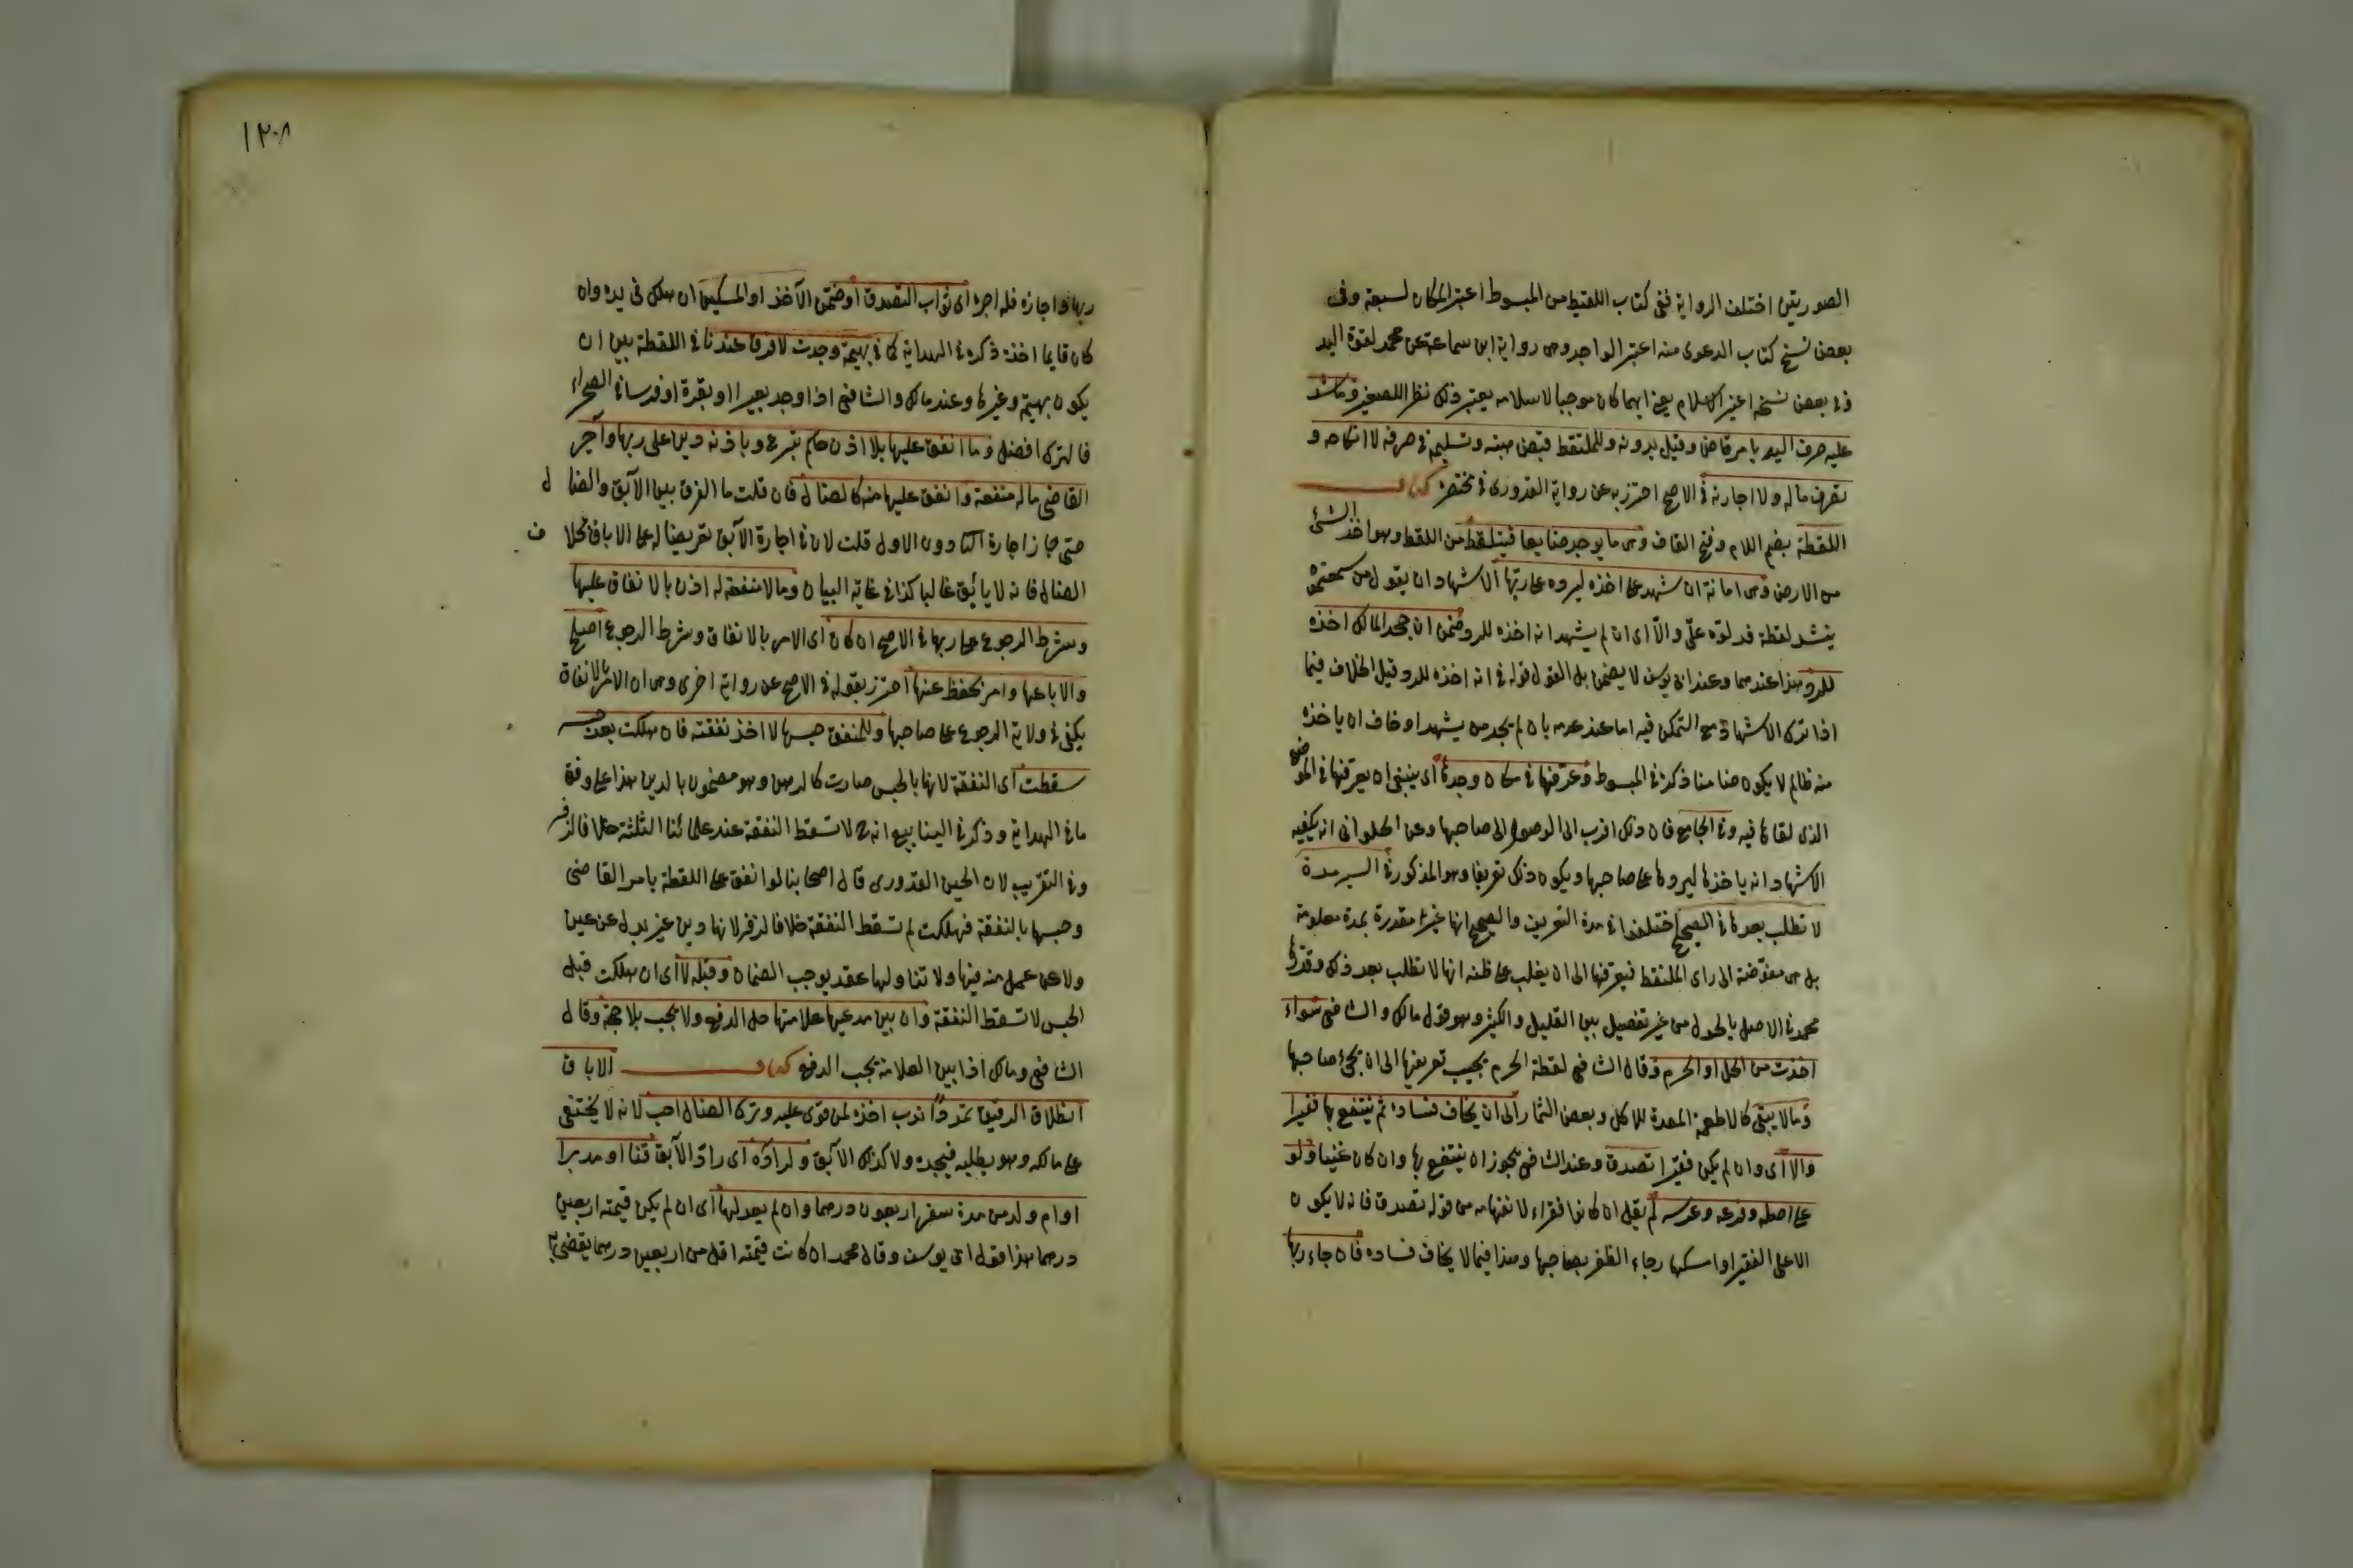 الصورتين اختلف الرواية ففى كتاب اللقيط من المبسوط اعتبر المكان لسبقه وفى
بعض نسخ كتاب الدعوى منه اعتبر الواجد وهى رواية ابن سماعة عن محمد لقوة اليد
وفى بعض نسخه اعتبر الاسلام يعنى ايهما كان موجبا لاسلامه يعتبر ذلك نظرا للصغير وما شد
عليه صرف اليه بامر قاض وقيل بدونه وللملتقط قبض هبته وتسليمه فى حرفة لا انكاحه و
تصرف ماله ولا اجارته فى الاصح احترز به عن رواية القدورى فى مختصره كتاب
اللقطة بضم اللام وفتح القاف وهى ما يوجد ضايعا فيلتقط من اللقط وهو اخذ الشئ
من الارض وهى امانة ان شهد على اخذه ليرده على ربها الاشهاد ان يقول من سمعتموه
ينشد لقطة فدلوه علىّ والّا اى ان لم يشهد انه اخذه للرد ضمن ان جحد المالك اخذه
للرد هذا عندهما وعند ابى يوسف لا يضمن بل القول قوله فى انه اخذه للرد قيل الخلاف فيما
اذا ترك الاشهاد مع التمكن فيه اما عند عدمه بان لم يجد من يشهد او خاف ان ياخذه
منه ظالم لا يكون ضامنا ذكره فى المبسوط وعرّفها فى مكان وجدها اى ينبغى ان يعرّفها فى الموضع
الذى لقاها فيه وفى الجامع فان ذلك اقرب الى الوصول الى صاحبها وعن الحلوانى انه يكفيه
الاشهاد انه ياخذها ليردها على صاحبها ويكون ذلك تعريفا وهو المذكور فى السير مدة
لا تطلب بعدها فى الصحيح اختلفوا فى مدة التعريف والصحيح انها غير مقدرة بمدة معلومة
بل هى مفوّضة الى راى الملتقط فيعرّفها الى ان يغلب على ظنه انها لا تطلب بعد ذلك وقدرها
محمد فى الاصل بالحول من غير تفصيل بين القليل والكثير وهو قول مالك والشافعى سواء
اخذت من الحل او الحرم وقال الشافعى لقطة الحرم يجب تعريفها الى ان يجئ صاحبها
وما لا يبقى كالاطعمة المعدة للاكل وبعض الثمار الى ان يخاف فساده ثم ينتفع بها فقيرا
والا اى وان لم يكن فقيرا تصدق وعند الشافعى يجوز ان ينتفع بها وان كان غنيا ولو
على اصله وفرعه وعرسه لم يقل ان كانوا فقراء لانفهامه من قوله تصدق فانه لا يكون
الا على الفقير او امسكها رجاء الظفر بصاحبها وهذا فيما لا يخاف فساده فان جاء ربها
١٢٠٨
ربها واجازه فله اجره اى ثواب التصدق او ضمّن الآخذ او المسكين ان هلك فى يده وان
كان قايما اخذه ذكره فى الهداية كما فى بهيمة وجدت لا فرق عندنا فى اللقطة بين ان
يكون بهيمة وغيرها وعند مالك والشافعى اذا وجد بعيرا او بقرة او فرسا فى الصحراء
فالترك افضل وما انفق عليها بلا اذن حاكم تبرع وباذنه دين على ربها وآجر
القاضى ما له منفعة وانفق عليها منه كالضال فان قلت ما الفرق بين الآبق والضال
حتى جاز اجارة الثانى دون الاول قلت لان فى اجارة الآبق تعريضا له على الاباق بخلاف
الضال فانه لا يأبق غالبا كذا فى غاية البيان وما لا منفعة له اذن بالانفاق عليها
وشرط الرجوع على ربها فى الاصح ان كان اى الامر بالانفاق وشرط الرجوع اصلح
والا باعها وامر بحفظ ثمنها احترز بقوله فى الاصح عن رواية اخرى وهى ان الامر بالانفاق
يكفى فى ولاية الرجوع على صاحبها وللمنفق حبسها لاخذ نفقته فان هلكت بعد حبسه
سقطت اى النفقة لانها بالحبس صارت كالرهن وهو مضمون بالدين هذا على وفق
ما فى الهداية وذكر فى الينابيع انه لا تسقط النفقة عند علمائنا الثلثة خلافا لزفر
وفى التقريب لابى الحسين القدورى قال اصحابنا لو انفق على اللقطة بامر القاضى
وحبسها بالنفقة فهلكت لم تسقط النفقة خلافا لزفر لانها دين غير بدل عن عين
ولا عن عمل منه فيها ولا تناولها عقد يوجب الضمان وقبله لا اى ان هلكت قبل
الحبس لا تسقط النفقة وان بين مدعيها علامتها حل الدفع ولا يجب بلا حجة وقال
الشافعى ومالك اذا بين العلامة يجب الدفع كتاب الاباق
انطلاق الرقيق تمردا ندب اخذه لمن قوى عليه وترك الضال احب لانه لا يختفى
على مالكه وهو يطلبه فيجده ولا كذلك الآبق ولرادّه اى رادّ الآبق قنا او مدبرا
او ام ولد من مدة سفر اربعون درهما وان لم يعدلها اى ان لم يكن قيمته اربعين
درهما هذا قول ابى يوسف وقال محمد ان كانت قيمته اقل من اربعين درهما يقضى له